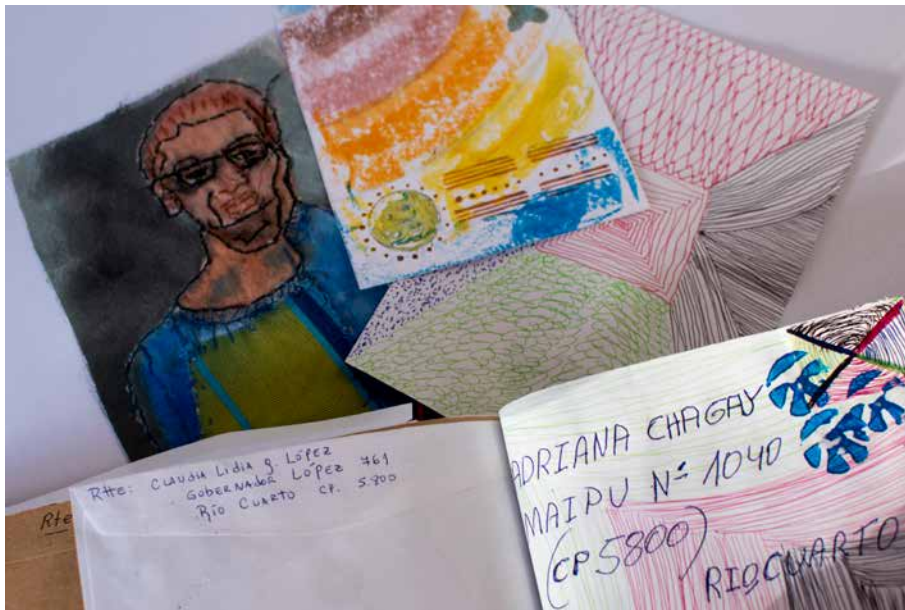 Rtte: CLAUDIA LIDIA G. LÓPEZ
GOBERNADOR LÓPEZ 761
RÍO CUARTO CP. 5.800
Rte
ADRIANA CHAGAY
MAIPU Nº 1040
(CP 5800)
RIO CUARTO